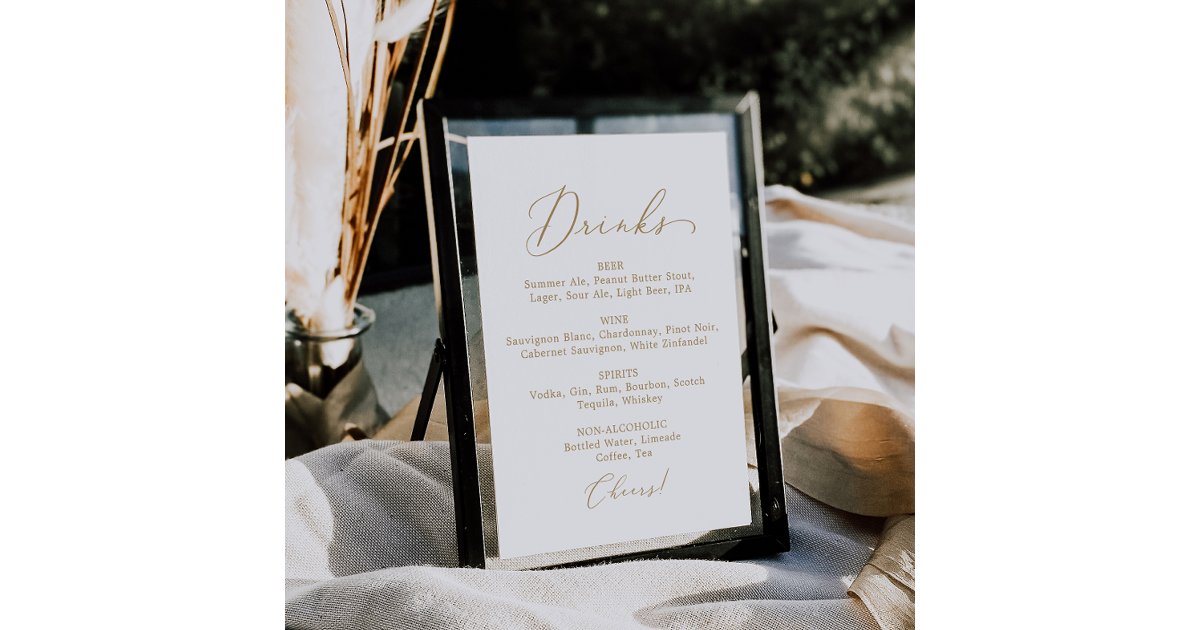 Drinks
BEER
Summer Ale, Peanut Butter Stout,
Lager, Sour Ale, Light Beer, IPA
WINE
Sauvignon Blanc, Chardonnay, Pinot Noir,
Cabernet Sauvignon, White Zinfandel
SPIRITS
Vodka, Gin, Rum, Bourbon, Scotch
Tequila, Whiskey
NON-ALCOHOLIC
Bottled Water, Limeade
Coffee, Tea
Cheers!